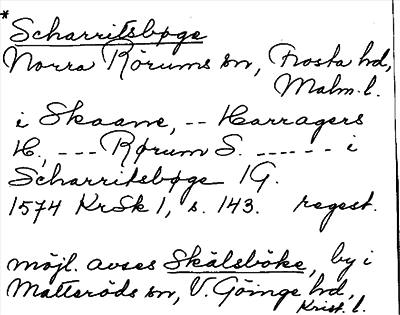 *
Scharritsbøge
Norra Rörums sn, Frosta hd,
Malm. l.
i Skaane, -- Harragers
H., --- Rørum S. ------ i
Scharritsbøge 1G.
1574 KrSk 1, s. 143. regest.
möjl. avses Skälsböke, by i
Matteröds sn, V. Göinge hd,
Krist. l.